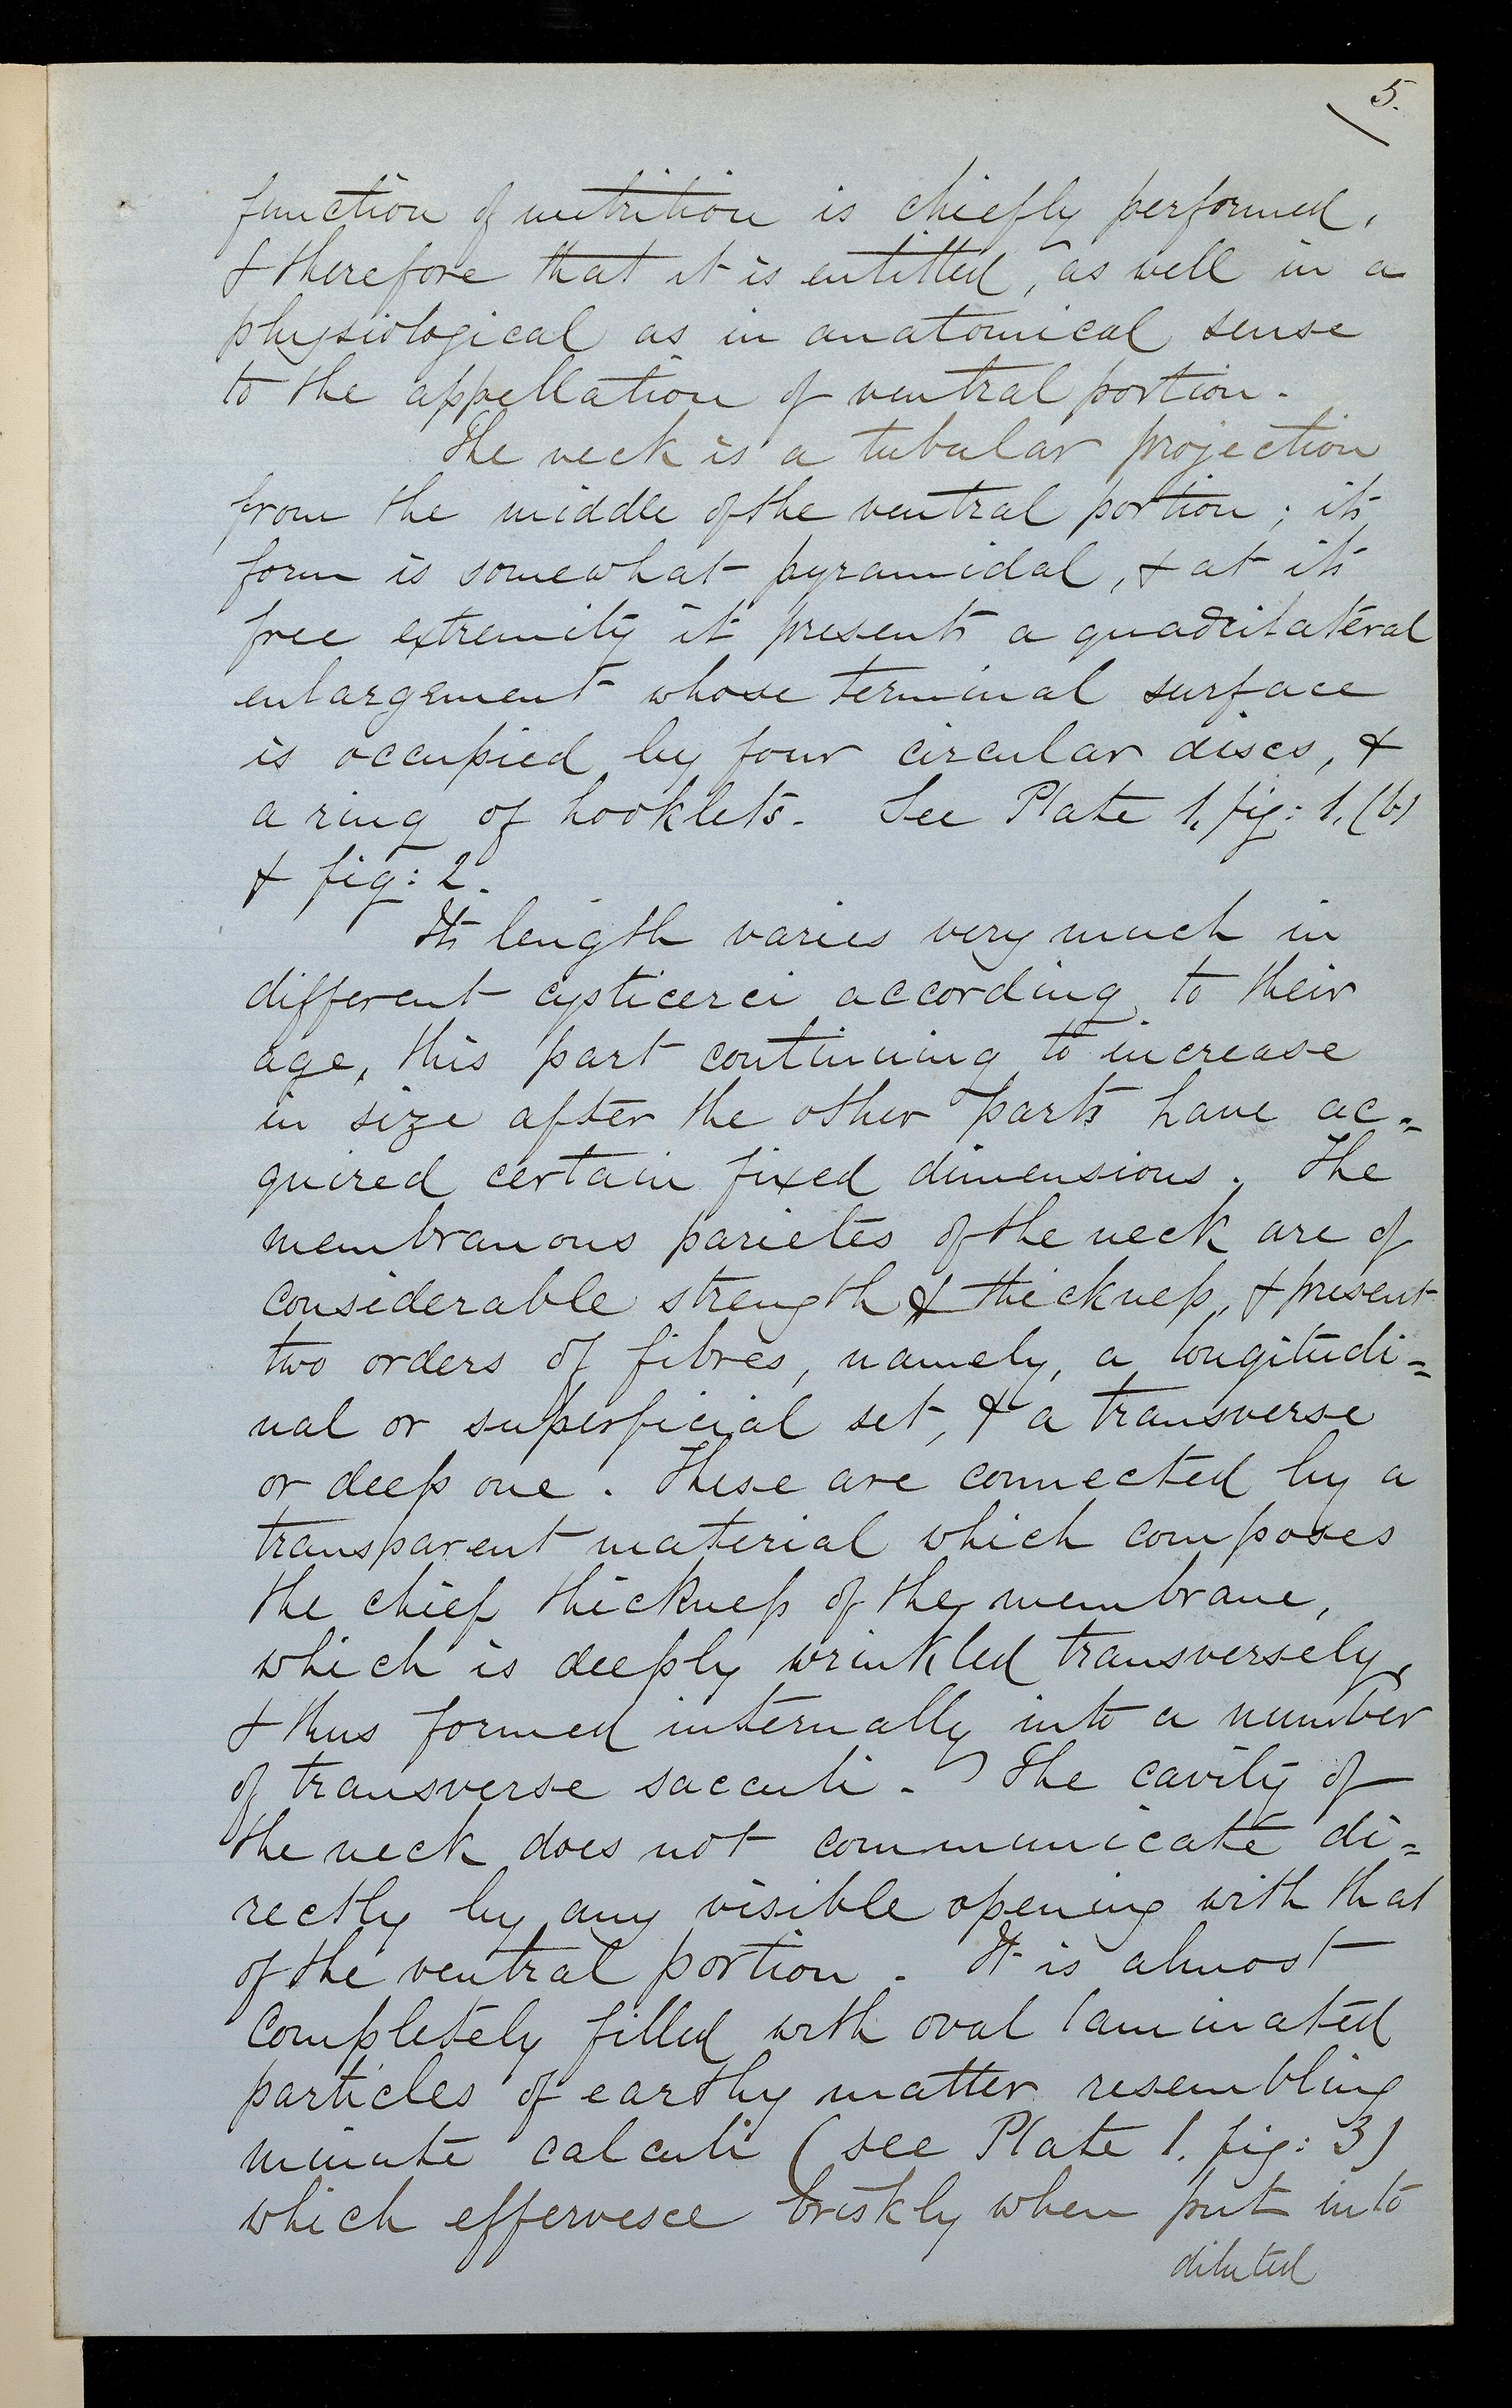 5.
function of nutrition is chiefly performed,
& therefore that it is entitled, as well in a
physiological as in anatomical sense
to the appellation of ventral portion.
The neck is a tubular projection
from the middle of the ventral portion; its
form is somewhat pyramidal, & at its
free extremity it presents a quadrilateral
enlargement whose terminal surface
is occupied by four circular discs, &
a ring of hooklets. See Plate 1, fig: 1, (b)
& fig: 2.
Its length varies very much in
different cysticerci according to their
age, this part continuing to increase
in size after the other parts have ac=
quired certain fixed dimensions. The
membranous parietes of the neck are of
considerable strength & thickness, & present
two orders of fibres, namely, a longitudi=
nal or superficial set, & a transverse
or deep one. These are connected by a
transparent material which composes
the chief thickness of the membrane,
which is deeply wrinkled transversely,
& thus formed internally into a number
of transverse sacculi. The cavity of
the neck does not communicate di=
rectly by any visible opening with that
of the ventral portion. It is almost
completely filled with oval laminated
particles of earthy matter resembling
minute calculi (see Plate 1. fig: 3)
which effervesce briskly when put into
diluted